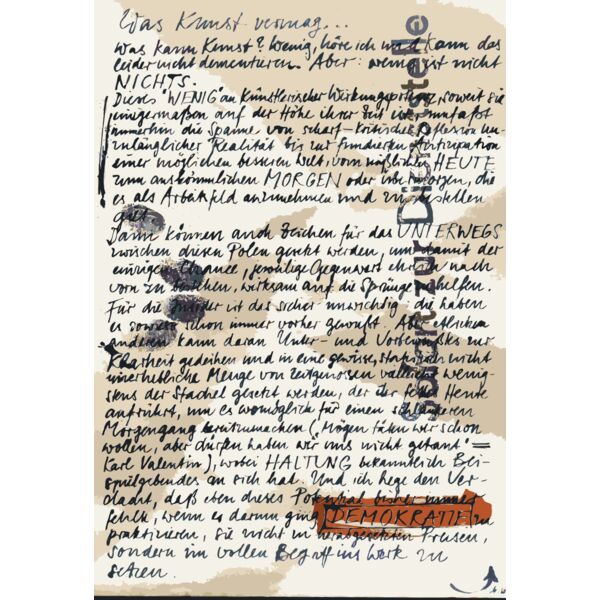 Was Kunst vermag...
Was kann Kunst? Wenig, höre ich und kann das
leider nicht dementieren. Aber: wenig ist nicht
NICHTS.
Dieses "WENIG" an künstlerischer Wirkungspotenz, soweit sie
einigermaßen auf der Höhe ihrer Zeit ist, umfaßt
immerhin die Spanne von scharf-kritischer Reflexion un-
zulänglicher Realität bis zur fundierten Antizipation
einer möglichen besseren Welt, vom mißlichen HEUTE
zum auskömmlichen MORGEN oder Übermorgen, die
es als Arbeitsfeld anzunehmen und zu bestellen
gilt.
Dann können auch Zeichen für das UNTERWEGS
zwischen diesen Polen gesetzt werden, um damit der
einzigen Chance, jeweilige Gegenwart ehrlich nach
vorn zu bestehen, wirksam auf die Sprünge zu helfen.
Für die ist das sicher unwichtig, die haben
es sowieso schon immer vorher gewußt. Aber etlichen
anderen kann daran Unter- und Vorbewußtes zur
Klarheit gedeihen und in eine gewisse, statistisch nicht
unerhebliche Menge von Zeitgenossen vielleicht wenig-
stens der Stachel gesetzt werden, der ihr Heute
aufrührt, um es womöglich für einen
Morgengang bereitzumachen ("Mögen täten wir schon
wollen, aber dürfen haben wir uns nicht getraut" =
Karl Valentin), wobei HALTUNG bekanntlich Bei-
spielgebendes an sich hat. Und ich hege den Ver-
dacht, daß eben dieses Potential bisher immer
fehlte, wenn es darum ging, DEMOKRATIE zu
praktizieren, sie nicht in herabgesetzten Preisen,
sondern im vollen Begriff ins Werk zu
setzen.
Sofort zur Dienststelle